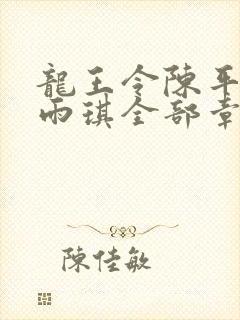 龍王令陳平
雨琪全部章
陳佳敏